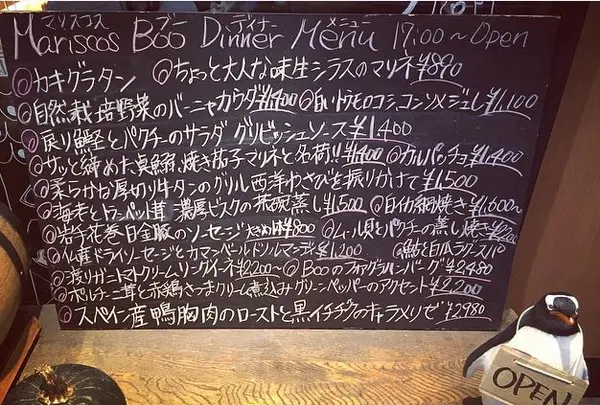 マリスコス ブー ディナー メニュー
Mariscos Boo Dinner Menu 17:00～Open
◎カキグラタン ◎ちょっと大人な味生シラスのマリネ¥890
◎自然栽培野菜のバーニャカウダ¥1,400 ◎白いトウモロコシコンソメジュレ¥1,100
◎戻り鰹とパクチーのサラダ グリビッシュソース¥1,400
◎サッと締めた真鯵、焼き茄子マリネと茗荷!!¥1,400 ◎カルパッチョ¥1,400
◎柔らかな厚切り牛タンのグリル西洋わさびを振りかけて¥1,500
◎海老とトランペット茸 濃厚ビスクの茶碗蒸し¥1,500 ◎白イカ網焼き¥1,600～
◎岩手花巻白金豚のソーセージ 大きめ1本¥800 ◎ムール貝とパクチーの蒸し焼き
◎仏産ドライソーセージとカマンベールドノルマンディ¥1,200
◎渡りガニトマトクリームリングイネ¥2200～ ◎Booのフォアグラハンバーグ¥2,480
◎ポルチーニ茸と赤鶏さつまクリーム煮込みグリーンペッパーのアクセント¥2,200
◎スペイン産鴨胸肉のローストと黒イチヂクのキャラメリゼ¥2980
OPEN